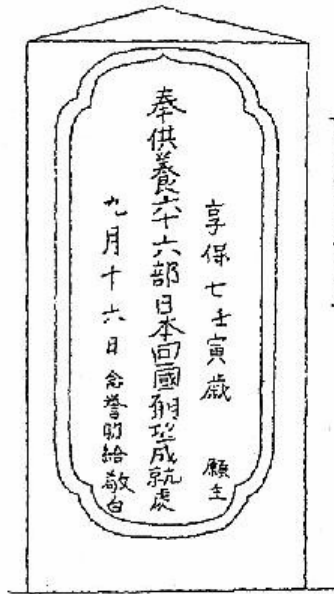 享保七壬寅歳　願主
奉供養六十六部日本回國所望成就處
九月十六日念誉助給敬白